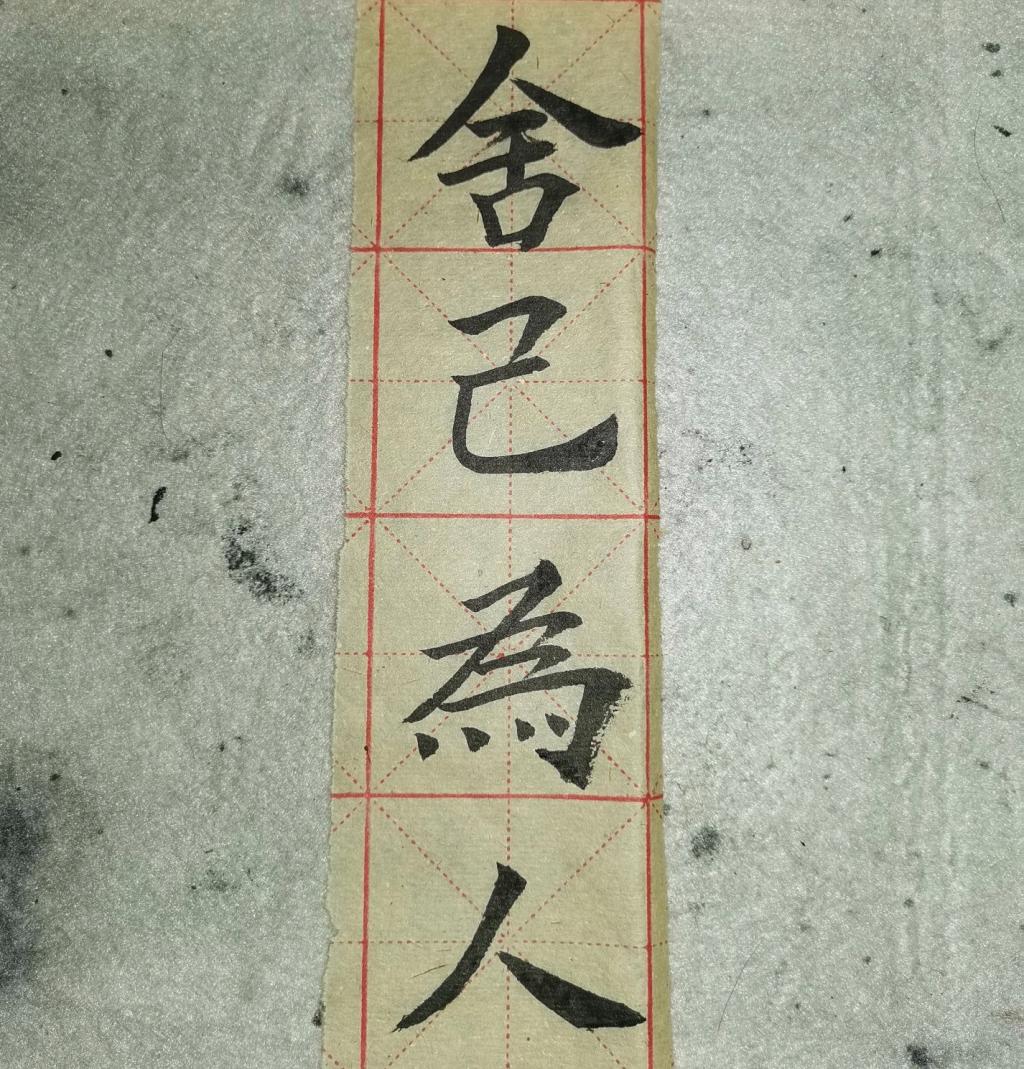 舍己為人